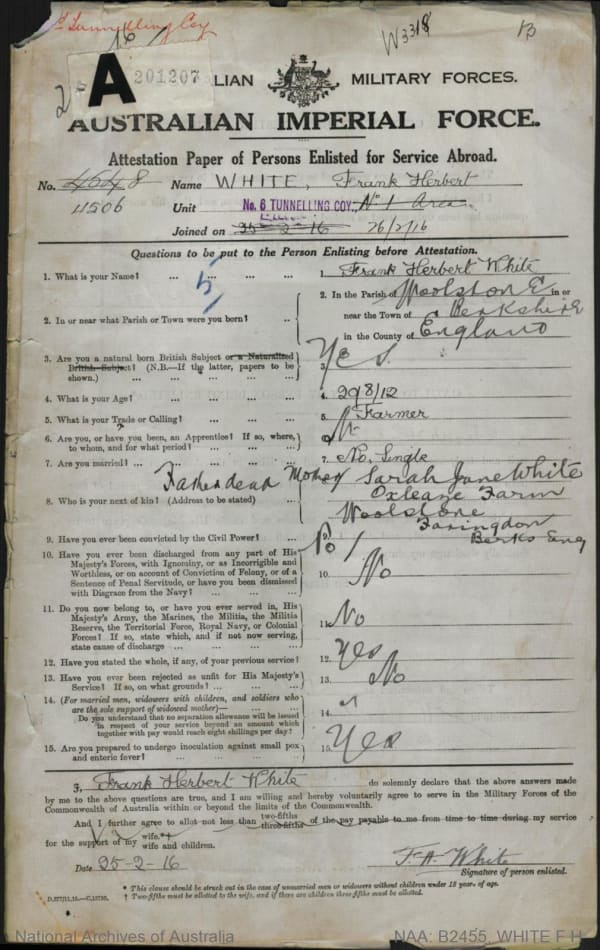 Tunnelling Coy
W3318
B
2
A
201207
LIAN MILITARY FORCES.
AUSTRALIAN IMPERIAL FORCE.
Attestation Paper of Persons Enlisted for Service Abroad.
No. 4548 Name WHITE, Frank Herbert
4506 Unit No. 6 TUNNELLING COY., No 1 Area
Joined on 25-2-16 26/2/16
Questions to be put to the Person Enlisting before Attestation.
5
1. What is your Name? ... ... ... ... 1. Frank Herbert White
2. In or near what Parish or Town were you born? ...
2. In the Parish of Woolston E in or
near the Town of Berkshire
in the County of England
3. Are you a natural born British Subject or a Naturalized
British Subject? (N.B.—If the latter, papers to be
shown.) ... ... ... ... ...
3. Yes.
4. What is your Age? ... ... ... ... 4. 29 8/12
5. What is your Trade or Calling? ... ... ... 5. Farmer
6. Are you, or have you been, an Apprentice? If so, where,
to whom, and for what period? ... ... ...
6.
7. Are you married? ... ... ... ... 7. No, Single
Father dead Mother Sarah Jane White
8. Who is your next of kin? (Address to be stated) ...
Oxleaze Farm
Woolstone
Faringdon
Berks Eng
9. Have you ever been convicted by the Civil Power? ... 9. No
10. Have you ever been discharged from any part of His
Majesty's Forces, with Ignominy, or as Incorrigible and
Worthless, or on account of Conviction of Felony, or of a
Sentence of Penal Servitude, or have you been dismissed
with Disgrace from the Navy? ... ... ...
10. No
11. Do you now belong to, or have you ever served in, His
Majesty's Army, the Marines, the Militia, the Militia
Reserve, the Territorial Force, Royal Navy, or Colonial
Forces? If so, state which, and if not now serving,
state cause of discharge ... ... ... ...
11. No
12. Have you stated the whole, if any, of your previous service? 12. Yes
13. Have you ever been rejected as unfit for His Majesty's
Service? If so, on what grounds? ... ... ...
13. No
14. (For married men, widowers with children, and soldiers who
are the sole support of widowed mother)—
Do you understand that no separation allowance will be issued
in respect of your service beyond an amount which
together with pay would reach eight shillings per day?
14.
15. Are you prepared to undergo inoculation against small pox
and enteric fever? ... ... ... ...
15. Yes
I, Frank Herbert White do solemnly declare that the above answers made
by me to the above questions are true, and I am willing and hereby voluntarily agree to serve in the Military Forces of the
Commonwealth of Australia within or beyond the limits of the Commonwealth.
And I further agree to allot not less than two-fifths three-fifths of the pay payable to me from time to time during my service
for the support of my wife.*† wife and children.
Date 25-2-16 F.H. White
Signature of person enlisted.
* This clause should be struck out in the case of unmarried men or widowers without children under 18 years of age.
† Two-fifths must be allotted to the wife, and if there are children three-fifths must be allotted.
National Archives of Australia
NAA: B2455, WHITE F H